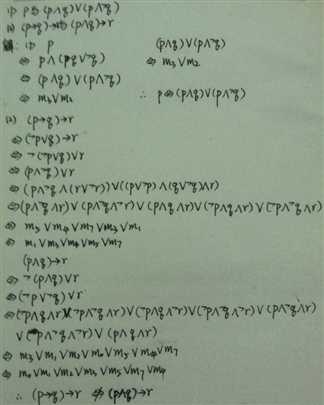 (1) p⇔(p∧q)∨(p∧¬q)
(2) (p→q)→r (p∧q)→r
(1) p (p∧q)∨(p∧¬q)
⇔ p∧(q∨¬q) ⇔ m₃∨m₂
⇔ (p∧q)∨(p∧¬q)
⇔ m₃∨m₂ ∴ p⇔(p∧q)∨(p∧¬q)
(2) (p→q)→r
⇔(¬p∨q)→r
⇔¬(¬p∨q)∨r
⇔(p∧¬q)∨r
⇔(p∧¬q∧(r∨¬r))∨((p∨¬p)∧(q∨¬q)∧r)
⇔(p∧¬q∧r)∨(p∧¬q∧¬r)∨(p∧q∧r)∨(¬p∧q∧r)∨(¬p∧¬q∧r)
⇔ m₅∨m₄∨m₇∨m₃∨m₁
⇔ m₁∨m₃∨m₄∨m₅∨m₇
(p∧q)→r
⇔¬(p∧q)∨r
⇔(¬p∨¬q)∨r
⇔(¬p∧q∧r)∨(¬p∧¬q∧r)∨(¬p∧q∧¬r)∨(¬p∧¬q∧¬r)∨(p∧¬q∧r)
∨(p∧¬q∧¬r)∨(p∧q∧r)
⇔m₃∨m₁∨m₂∨m₀∨m₅∨m₄∨m₇
⇔m₀∨m₁∨m₂∨m₃∨m₅∨m₇∨m₄
∴ (p→q)→r ⇎ (p∧q)→r